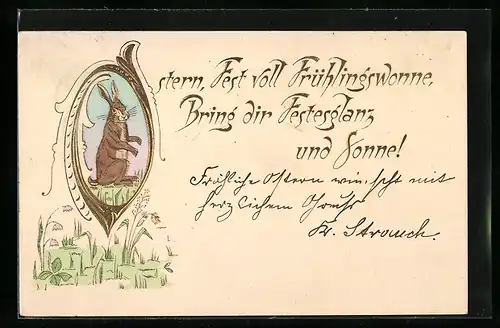 Ostern, Fest voll Frühlingswonne,
Bring dir Festesglanz
und Sonne!
Fröhliche Ostern wünscht mit
herzlichem Gruß
Fr. Strauch.